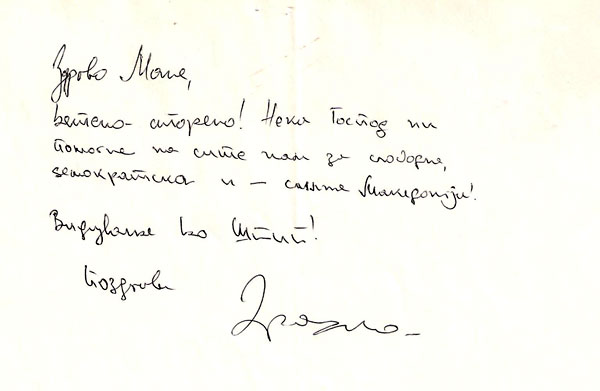 Здраво Мане,
ветено - сторено! Нека Господ ни
помогне на сите нам за слободна,
демократска и – Македонија!
Видување во Штип!
Поздрави